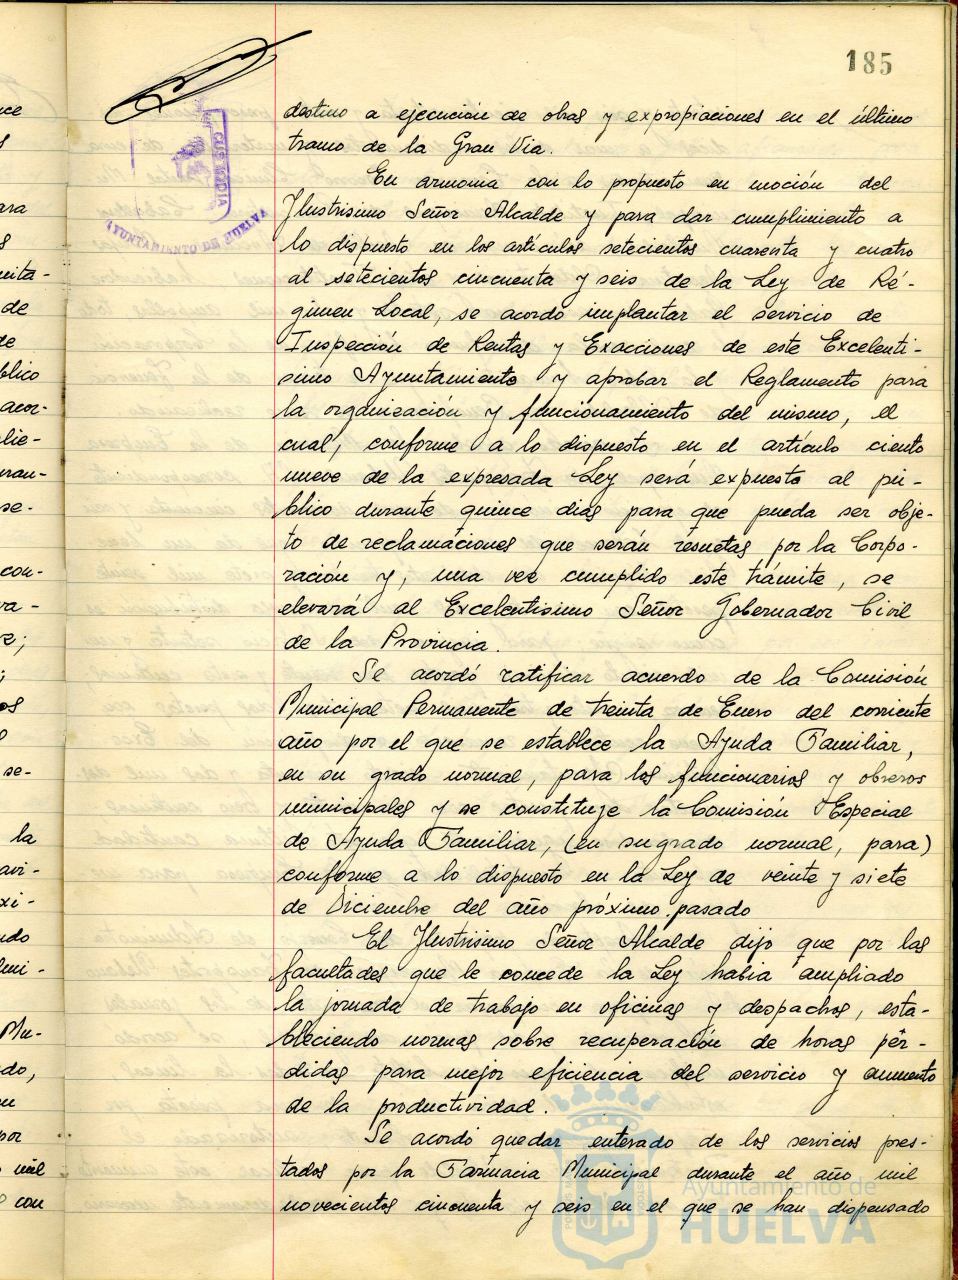 185
destino a ejecución de obras y expropiaciones en el último
tramo de la Gran Vía.
En armonia con lo propuesto en moción del
Ilustrisimo Señor Alcalde y para dar cumplimiento a
lo dispuesto en los artículos setecientos cuarenta y cuatro
al setecientos cincuenta y seis de la Ley de Ré-
gimen Local, se acordó implantar el servicio de
Inspección de Rentas y Exacciones de este Excelenti-
simo Ayuntamiento y aprobar el Reglamento para
la organización y funcionamiento del mismo, el
cual, conforme a lo dispuesto en el artículo ciento
nueve de la expresada Ley será expuesto al pú-
blico durante quince dias para que pueda ser obje-
to de reclamaciones que serán resueltas por la Corpo-
ración y, una vez cumplido este trámite, se
elevará al Excelentisimo Señor Gobernador Civil
de la Provincia.
Se acordó ratificar acuerdo de la Comisión
Municipal Permanente de treinta de Enero del corriente
año por el que se establece la Ayuda Familiar,
en su grado normal, para los funcionarios y obreros
municipales y se constituye la Comisión Especial
de Ayuda Familiar, (en su grado normal, para)
conforme a lo dispuesto en la Ley de veinte y siete
de Diciembre del año próximo pasado
El Ilustrisimo Señor Alcalde dijo que por las
facultades que le concede la Ley habia ampliado
la jornada de trabajo en oficinas y despachos, esta-
bleciendo normas sobre recuperación de horas pér-
didas para mejor eficiencia del servicio y aumento
de la productividad.
Se acordó quedar enterado de los servicios pres-
tados por la Farmacia Municipal durante el año mil
novecientos cincuenta y seis en el que se han dispensado
CUSTODIA
AYUNTAMIENTO DE HUELVA
Ayuntamiento de
HUELVA